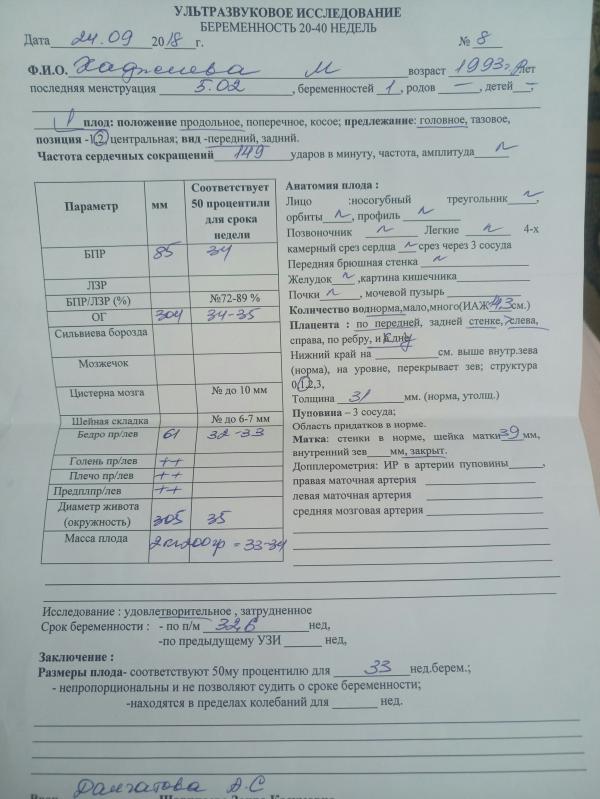 УЛЬТРАЗВУКОВОЕ ИССЛЕДОВАНИЕ
БЕРЕМЕННОСТЬ 20-40 НЕДЕЛЬ
Дата 24.09 2018г. № 8
Ф.И.О. М возраст 1993г.р лет
последняя менструация 5.02, беременностей 1, родов —, детей —,
плод: положение продольное, поперечное, косое; предлежание: головное, тазовое,
позиция -1,2, центральная; вид -передний, задний.
Частота сердечных сокращений 149 ударов в минуту, частота, амплитуда N
Параметр мм Соответствует 50 процентили для срока недели
БПР 85 34
ЛЗР
БПР/ЛЗР (%) №72-89 %
ОГ 304 34-35
Сильвиева борозда
Мозжечок
Цистерна мозга № до 10 мм
Шейная складка № до 6-7 мм
Бедро пр/лев 61 32-33
Голень пр/лев ++
Плечо пр/лев ++
Предплпр/лев ++
Диаметр живота (окружность) 305 35
Масса плода 2кг200гр = 33-34
Анатомия плода :
Лицо :носогубный треугольник N,
орбиты N, профиль N
Позвоночник N Легкие N 4-х
камерный срез сердца N срез через 3 сосуда
Передняя брюшная стенка N
Желудок N ,картина кишечника
Почки N, мочевой пузырь
Количество вод норма,мало,много(ИАЖ 4,3 см.)
Плацента : по передней, задней стенке, слева,
справа, по ребру,
Нижний край на см. выше внутр.зева
(норма), на уровне, перекрывает зев; структура
0,1,2,3,
Толщина 31 мм. (норма, утолщ.)
Пуповина – 3 сосуда;
Область придатков в норме.
Матка: стенки в норме, шейка матки 39 мм,
внутренний зев мм, закрыт.
Допплерометрия: ИР в артерии пуповины ,
правая маточная артерия
левая маточная артерия
средняя мозговая артерия
Исследование : удовлетворительное , затрудненное
Срок беременности : - по п/м 32,6 нед,
-по предыдущему УЗИ нед,
Заключение :
Размеры плода- соответствуют 50му процентилю для 33 нед.берем.;
- непропорциональны и не позволяют судить о сроке беременности;
-находятся в пределах колебаний для нед.
Далгатова А.С